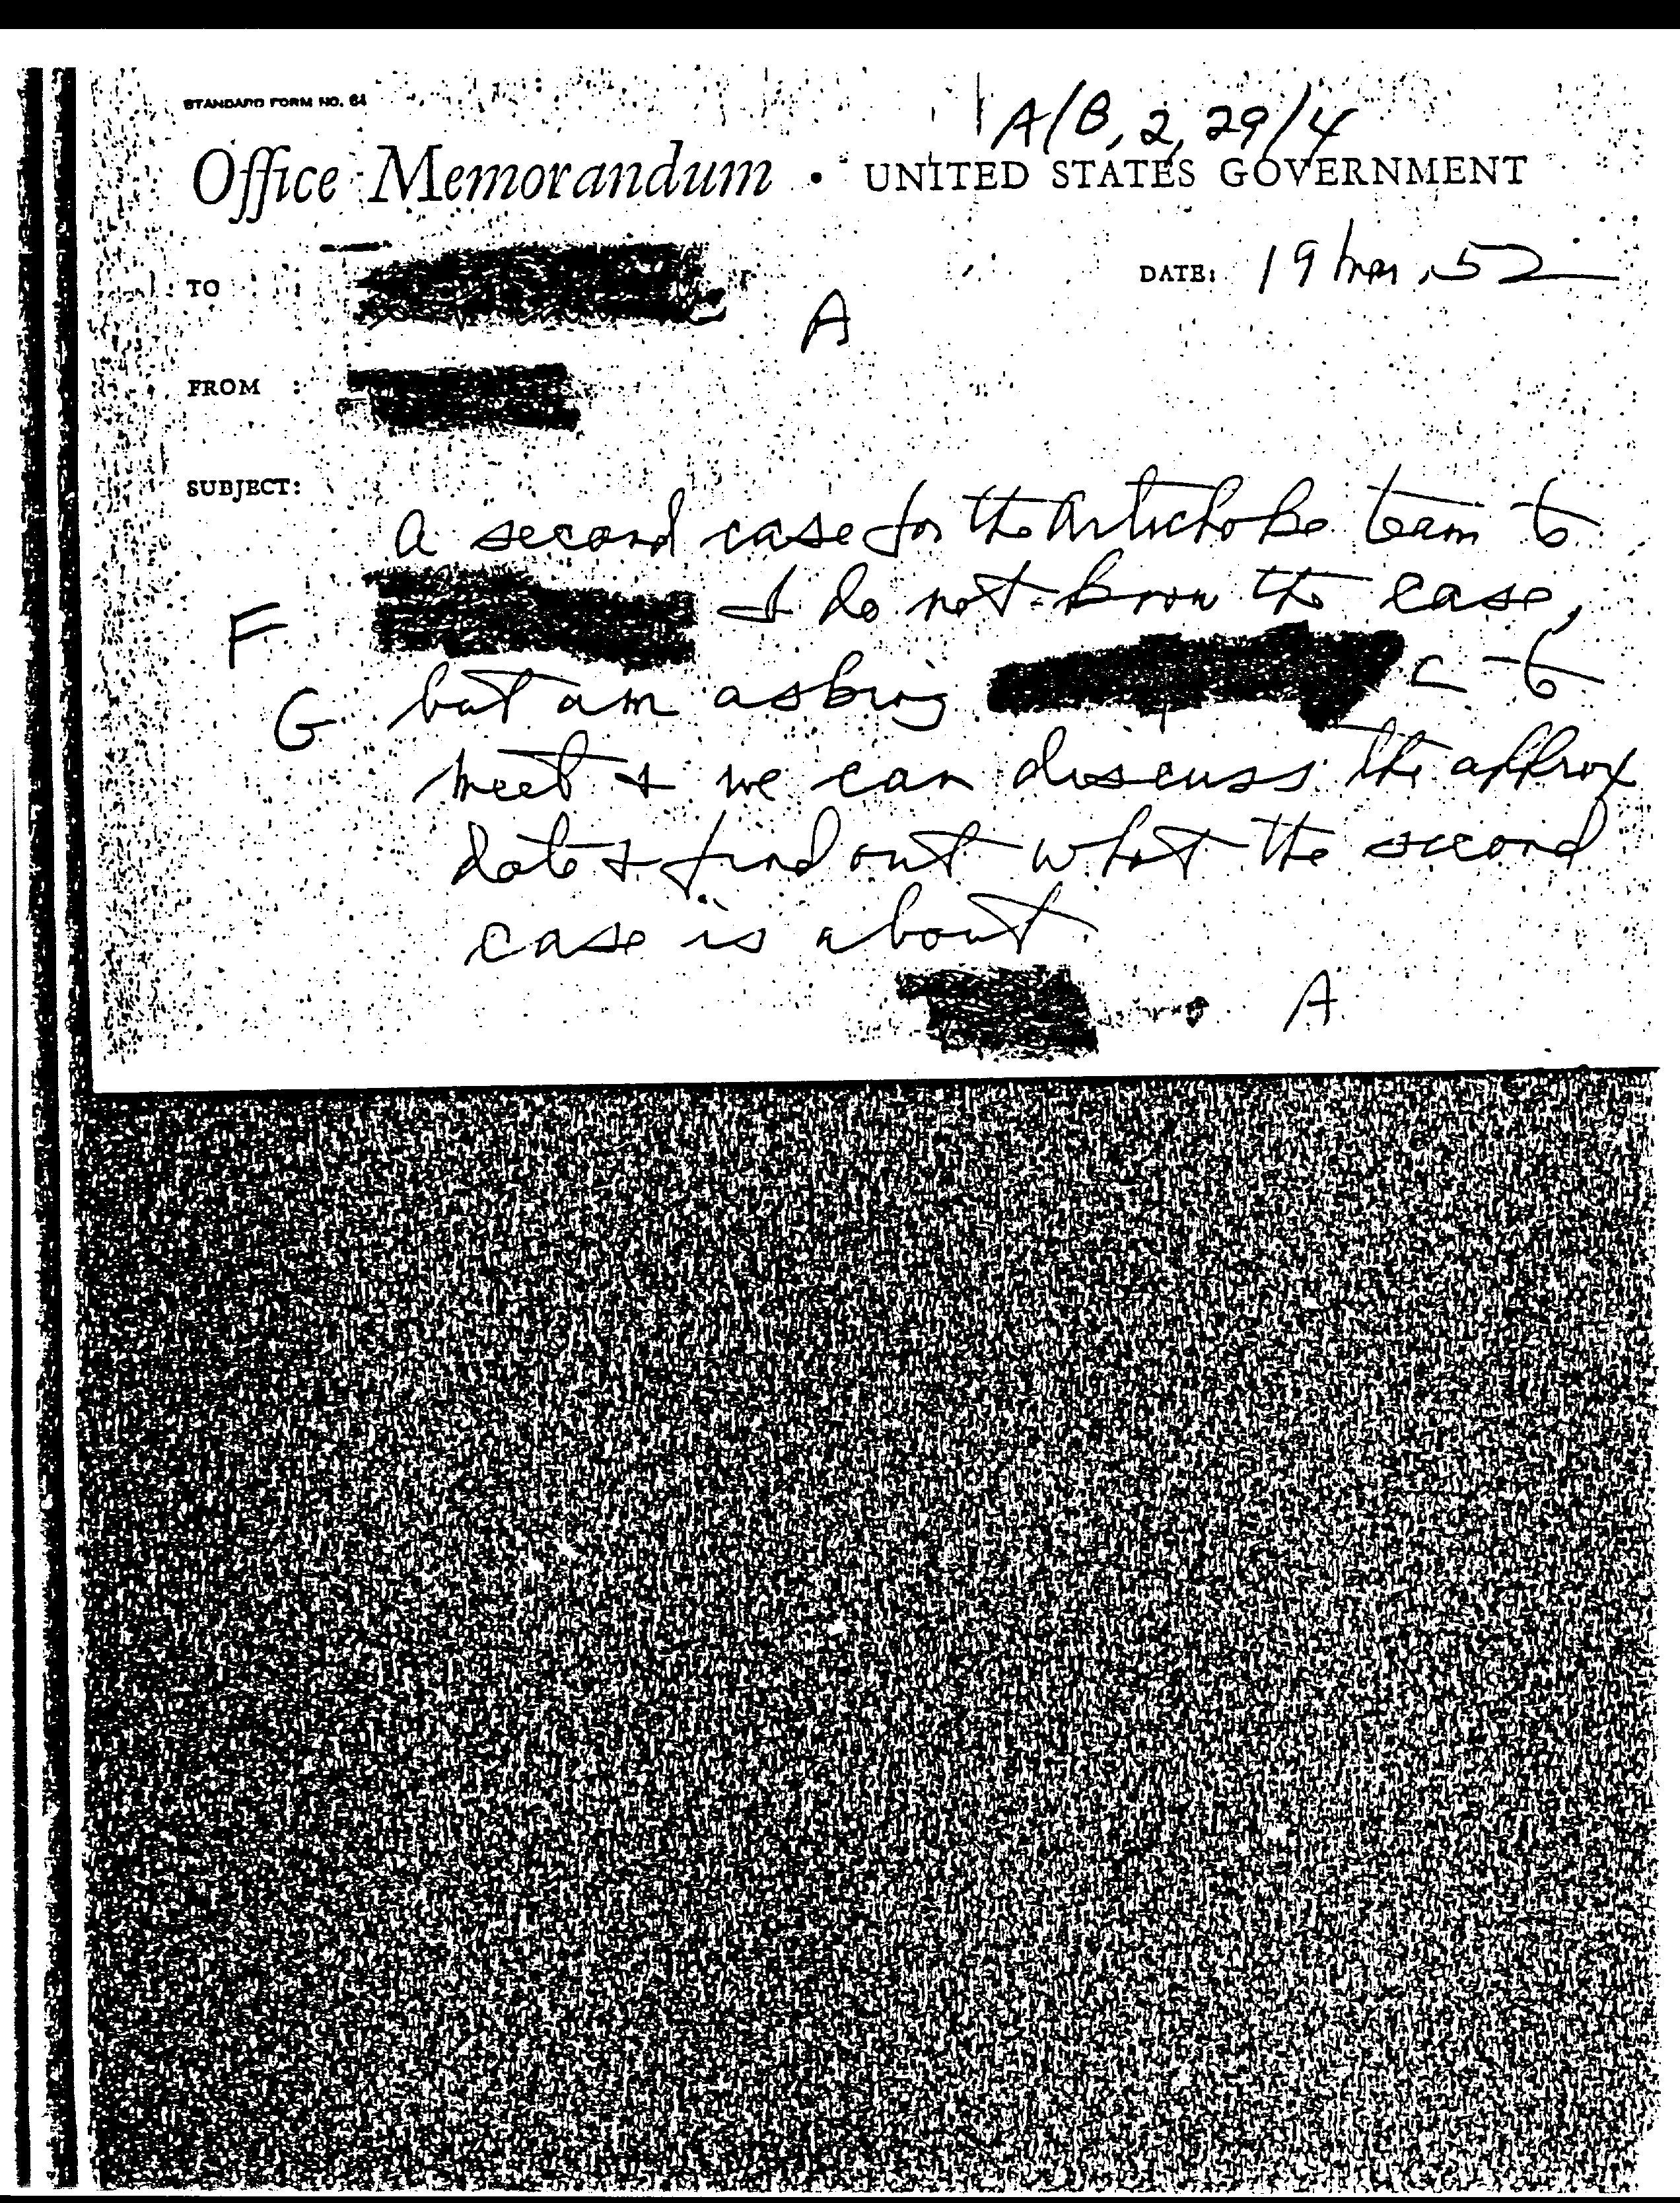 STANDARD FORM NO. 64
A/B, 2, 29/4
Office Memorandum • UNITED STATES GOVERNMENT
TO : A DATE: 19 Mar, 52
FROM :
SUBJECT:
A second case for the Artichoke team to
F I do not know the case,
G but am asking C to
meet & we can discuss the approx
date & find out what the second
case is about.
A